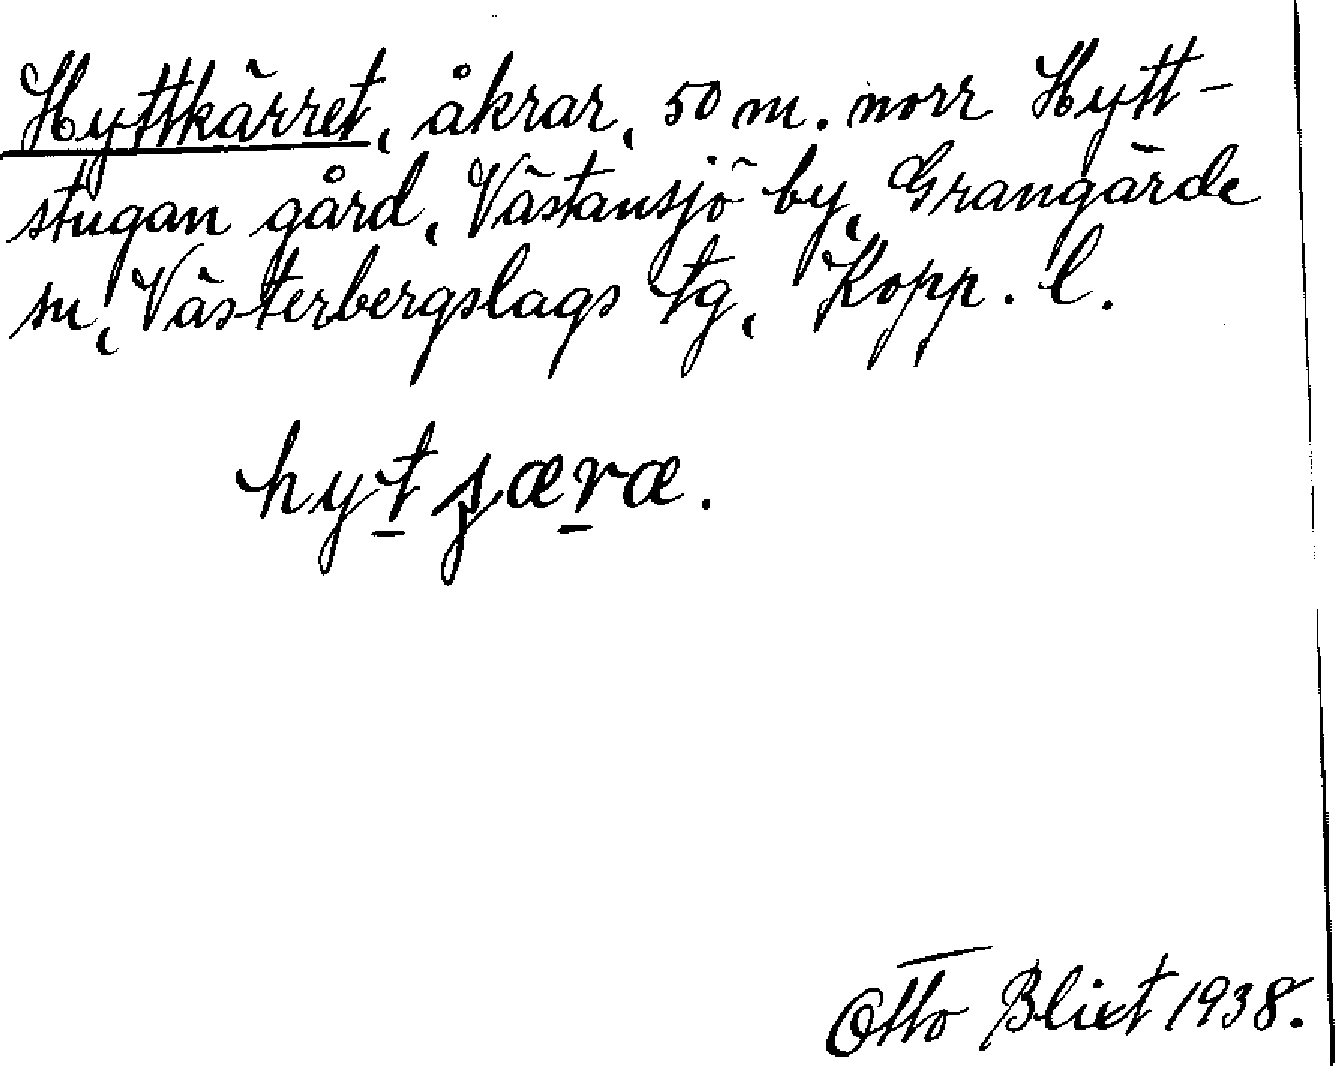 Hyttkärret, åkrar, 50 m. norr Hytt-
stugan gård, Västansjö by, Grangärde
sn, Västerbergslags tg, Kopp. l.
hyt ʂæræ.
Otto Blixt 1938.